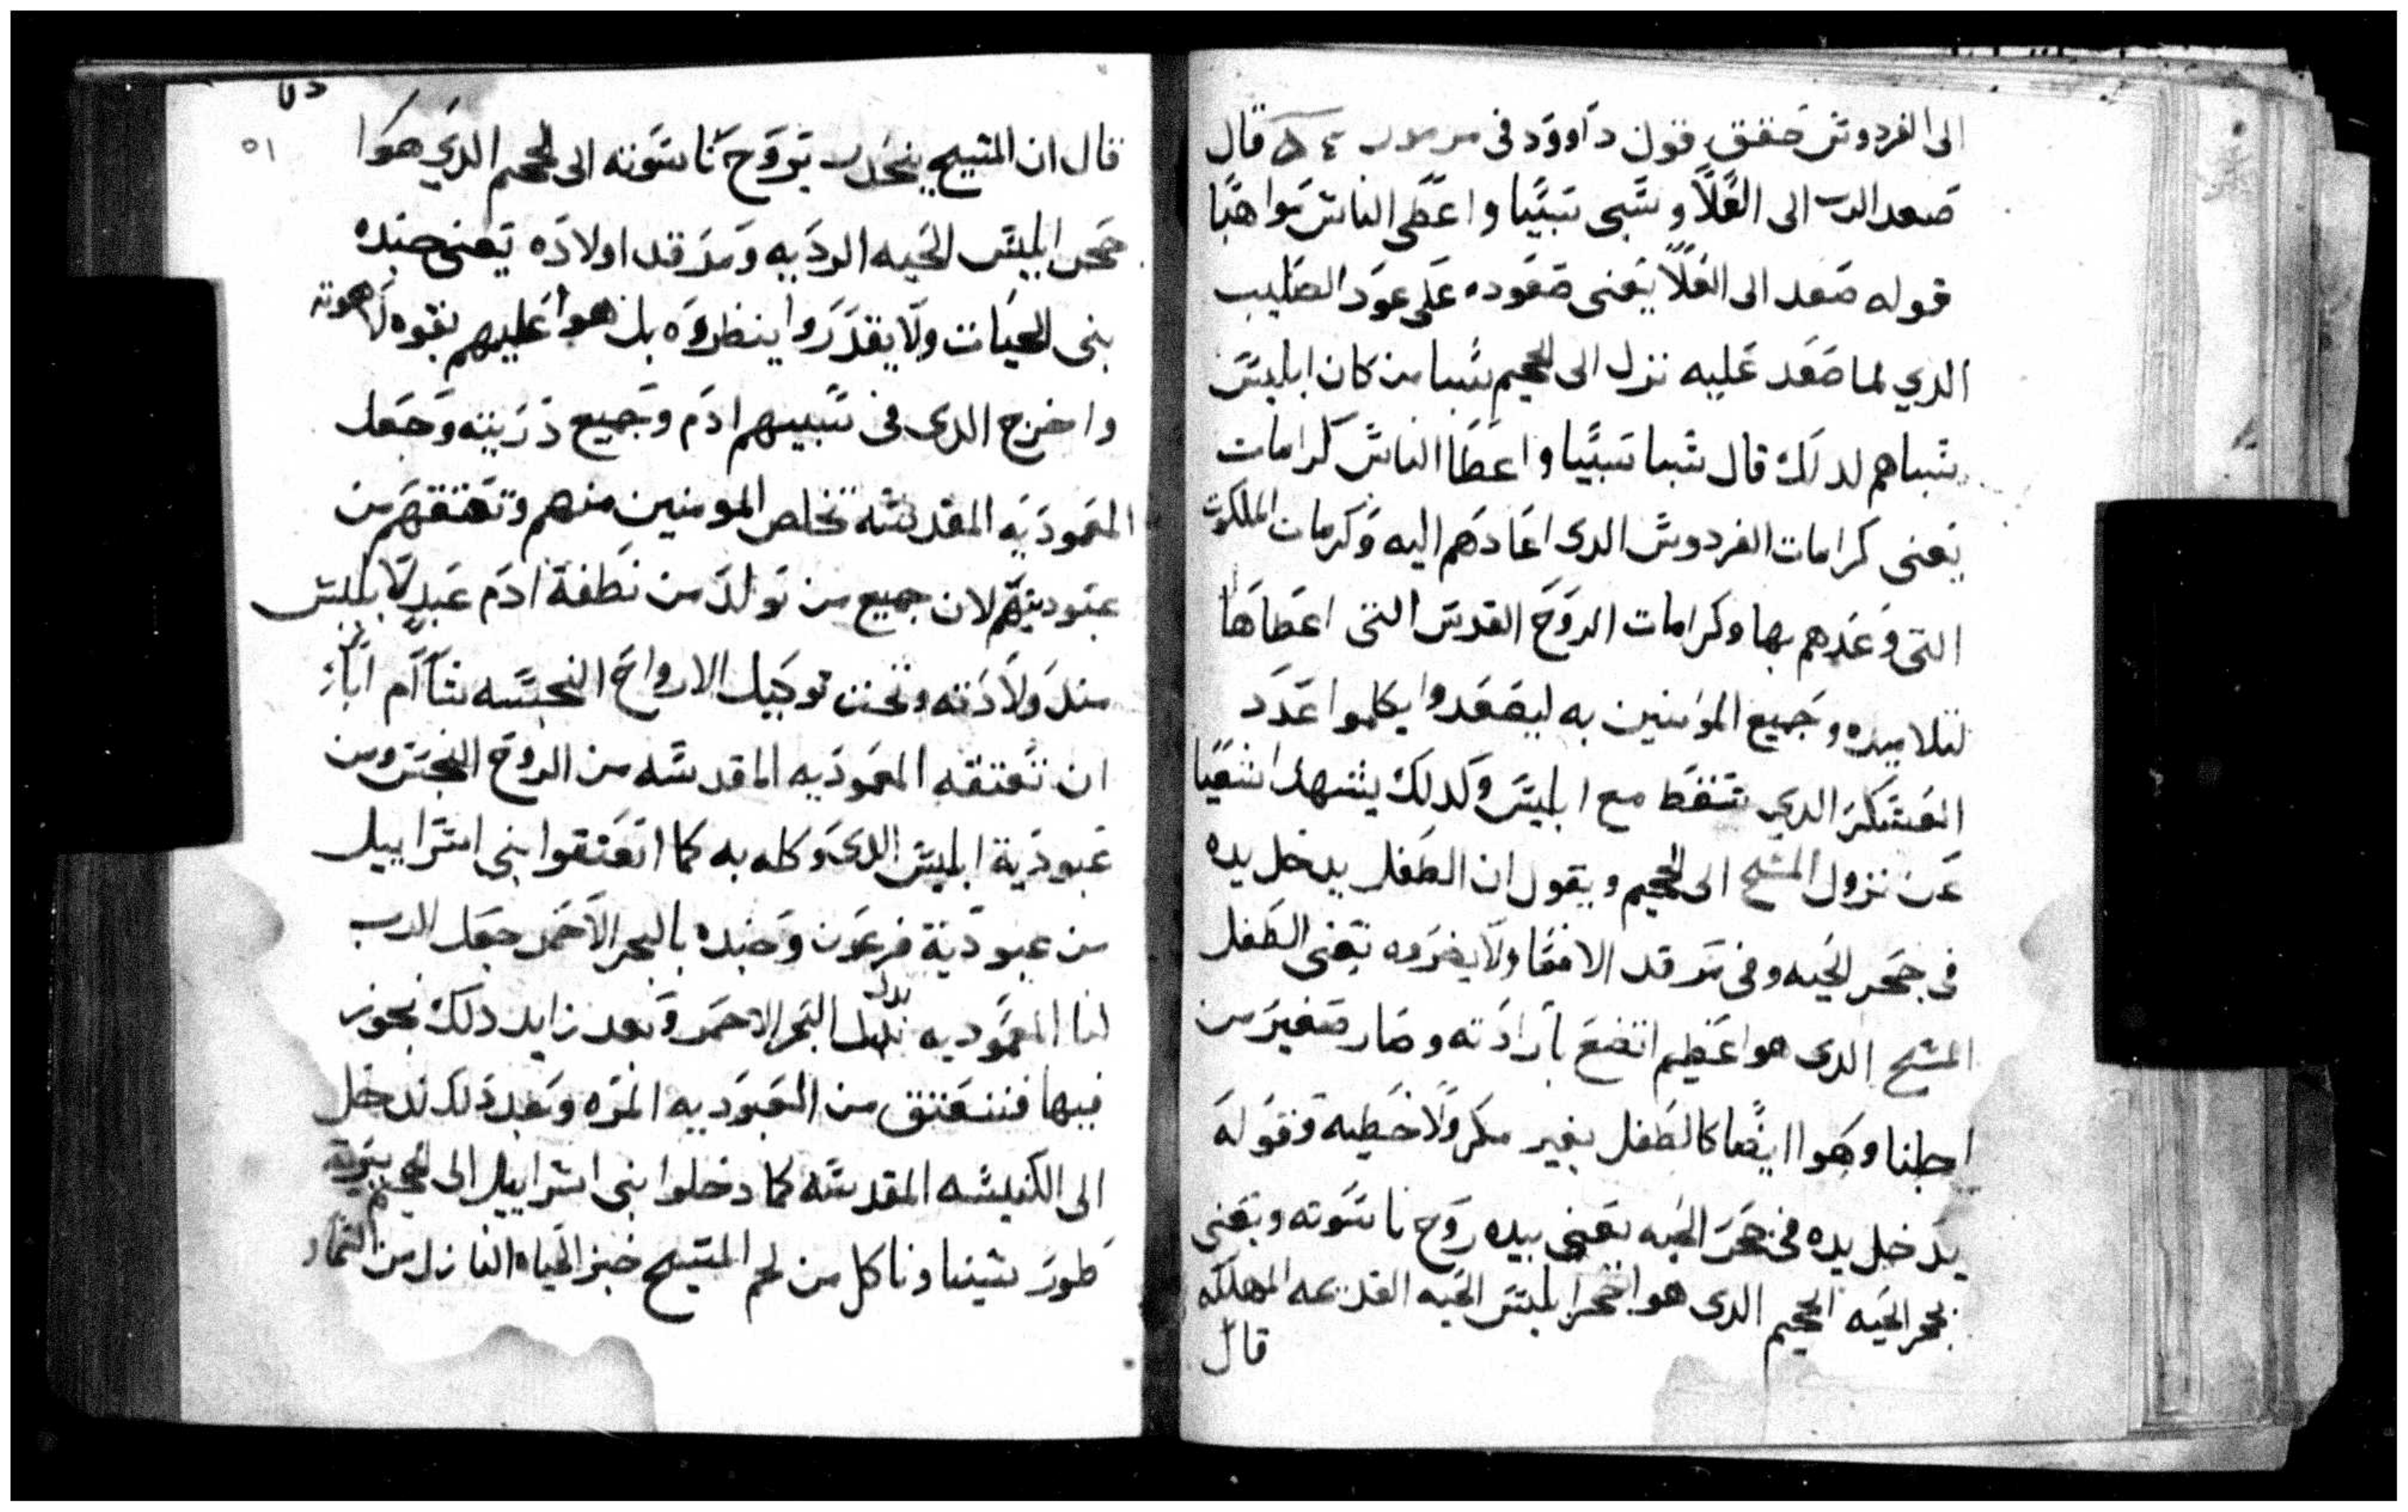 الى الفردوس حقق قول داوود فى مزمور قال
صعد الرب الى العلا وسبى سبيا واعطى الناس مواهبا
قوله صعد الى العلا يعنى صعوده على عود الصليب
الدي لما صعد عليه نزل الى الجحيم سبا من كان ابليس
سباهم لدلك قال سبا سبيا واعطا الناس كرامات
يعنى كرامات الفردوس الدى اعادهم اليه وكرمات الملكوت
التى وعدهم بها وكرامات الروح القدس التى اعطاها
لتلاميده وجميع المومنين به ليصعدوا يكلموا عدد
العسكر الدي سقط مع ابليس وكدلك يشهد اشعيا
عن نزول المسيح الى الجحيم ويقول ان الطفل يدخل يده
فى جحر الحيه وفى مرقد الافعا ولا يضروه يعنى الطفل
المسيح الدى هوا عظيم اتضع بارادته وصار صغير من
اجلنا وهوا ايضا كالطفل بغير مكر ولا خطيه وقوله
يدخل يده فى جحر الحيه يعنى بيده روح ناسوته ويعنى
بجحر الحيه الجحيم الدى هوا جحر ابليس الحيه القديمه المهلكه
قال
٥١
قال ان المسيح ينحدر بروح ناسوته الى الجحيم الدي هوا
جحر ابليس الحيه الرديه ومرقد اولاده يعنى جنده
بنى الحيات ولا يقدروا ينظروه بل هوا عليهم بقوه لاهوته
واخرج الدى فى سبيهم ادم وجميع دريته وجعل
المعموديه المقدسه تخلص المومنين منهم وتعتقهم من
عبوديتهم لان جميع من تولد من نطفة ادم عبد لابليس
مند ولادته وتحت توكيل الارواح النجسه شاآم ابا
ان تعتقه المعموديه المقدسه من الروح النجس ومن
عبودية ابليس الدى وكله به كما اتعتقوا بنى اسراييل
من عبودية فرعون وجنده بالبحر الاحمر جعل الرب
لنا المعموديه بدل البحر الاحمر وبعد زايد دلك نجوز
فيها فننعتق من العبوديه المره وبعد دلك ندخل
الى الكنيسه المقدسه كما دخلوا بنى اسراييل الى بريه
طور سينا وناكل من لحم المسيح خبز الحياه النازل من السما